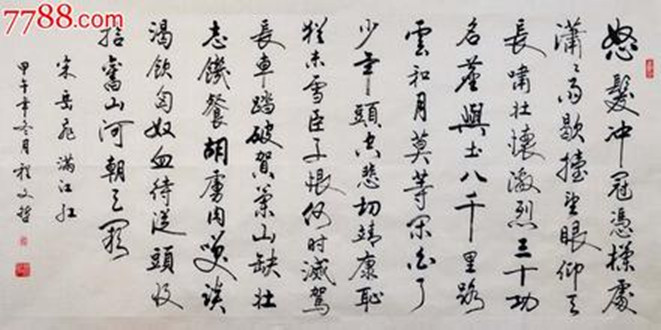 7788.com
怒髮冲冠憑欄處
瀟々雨歇擡望眼仰天
長嘯壯懷激烈三十功
名塵與土八千里路
雲和月莫等閑白了
少年頭空悲切靖康恥
猶未雪臣子恨何時滅駕
長車踏破賀蘭山缺壯
志饑餐胡虜肉笑談
渴飲匈奴血待從頭收
拾舊山河朝天闕
宋岳飛滿江紅
甲午年冬月程文哲